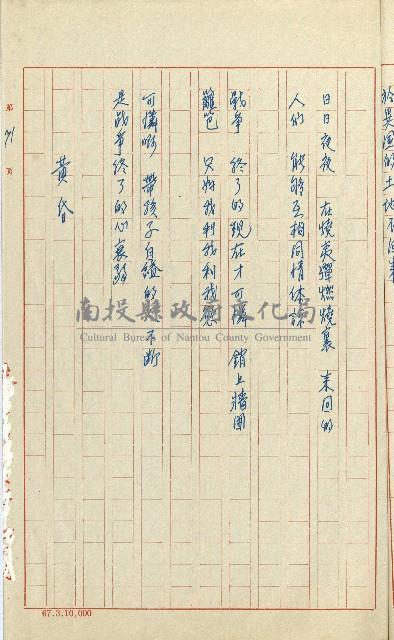 於異國的土地不回來
日日夜夜 在燒夷彈燃燒裏 来回的
人們 能夠互相同情体諒
戰争 終了的現在才可隣銷上牆圍
籬笆 只為我利我利我慾
可憐喲 帶孩子自縊的不断
是战争終了的心衰弱
黄昏
第 71 頁
南投縣政府文化局
Cultural Bureau of Nantou County Government
67.3.10,000